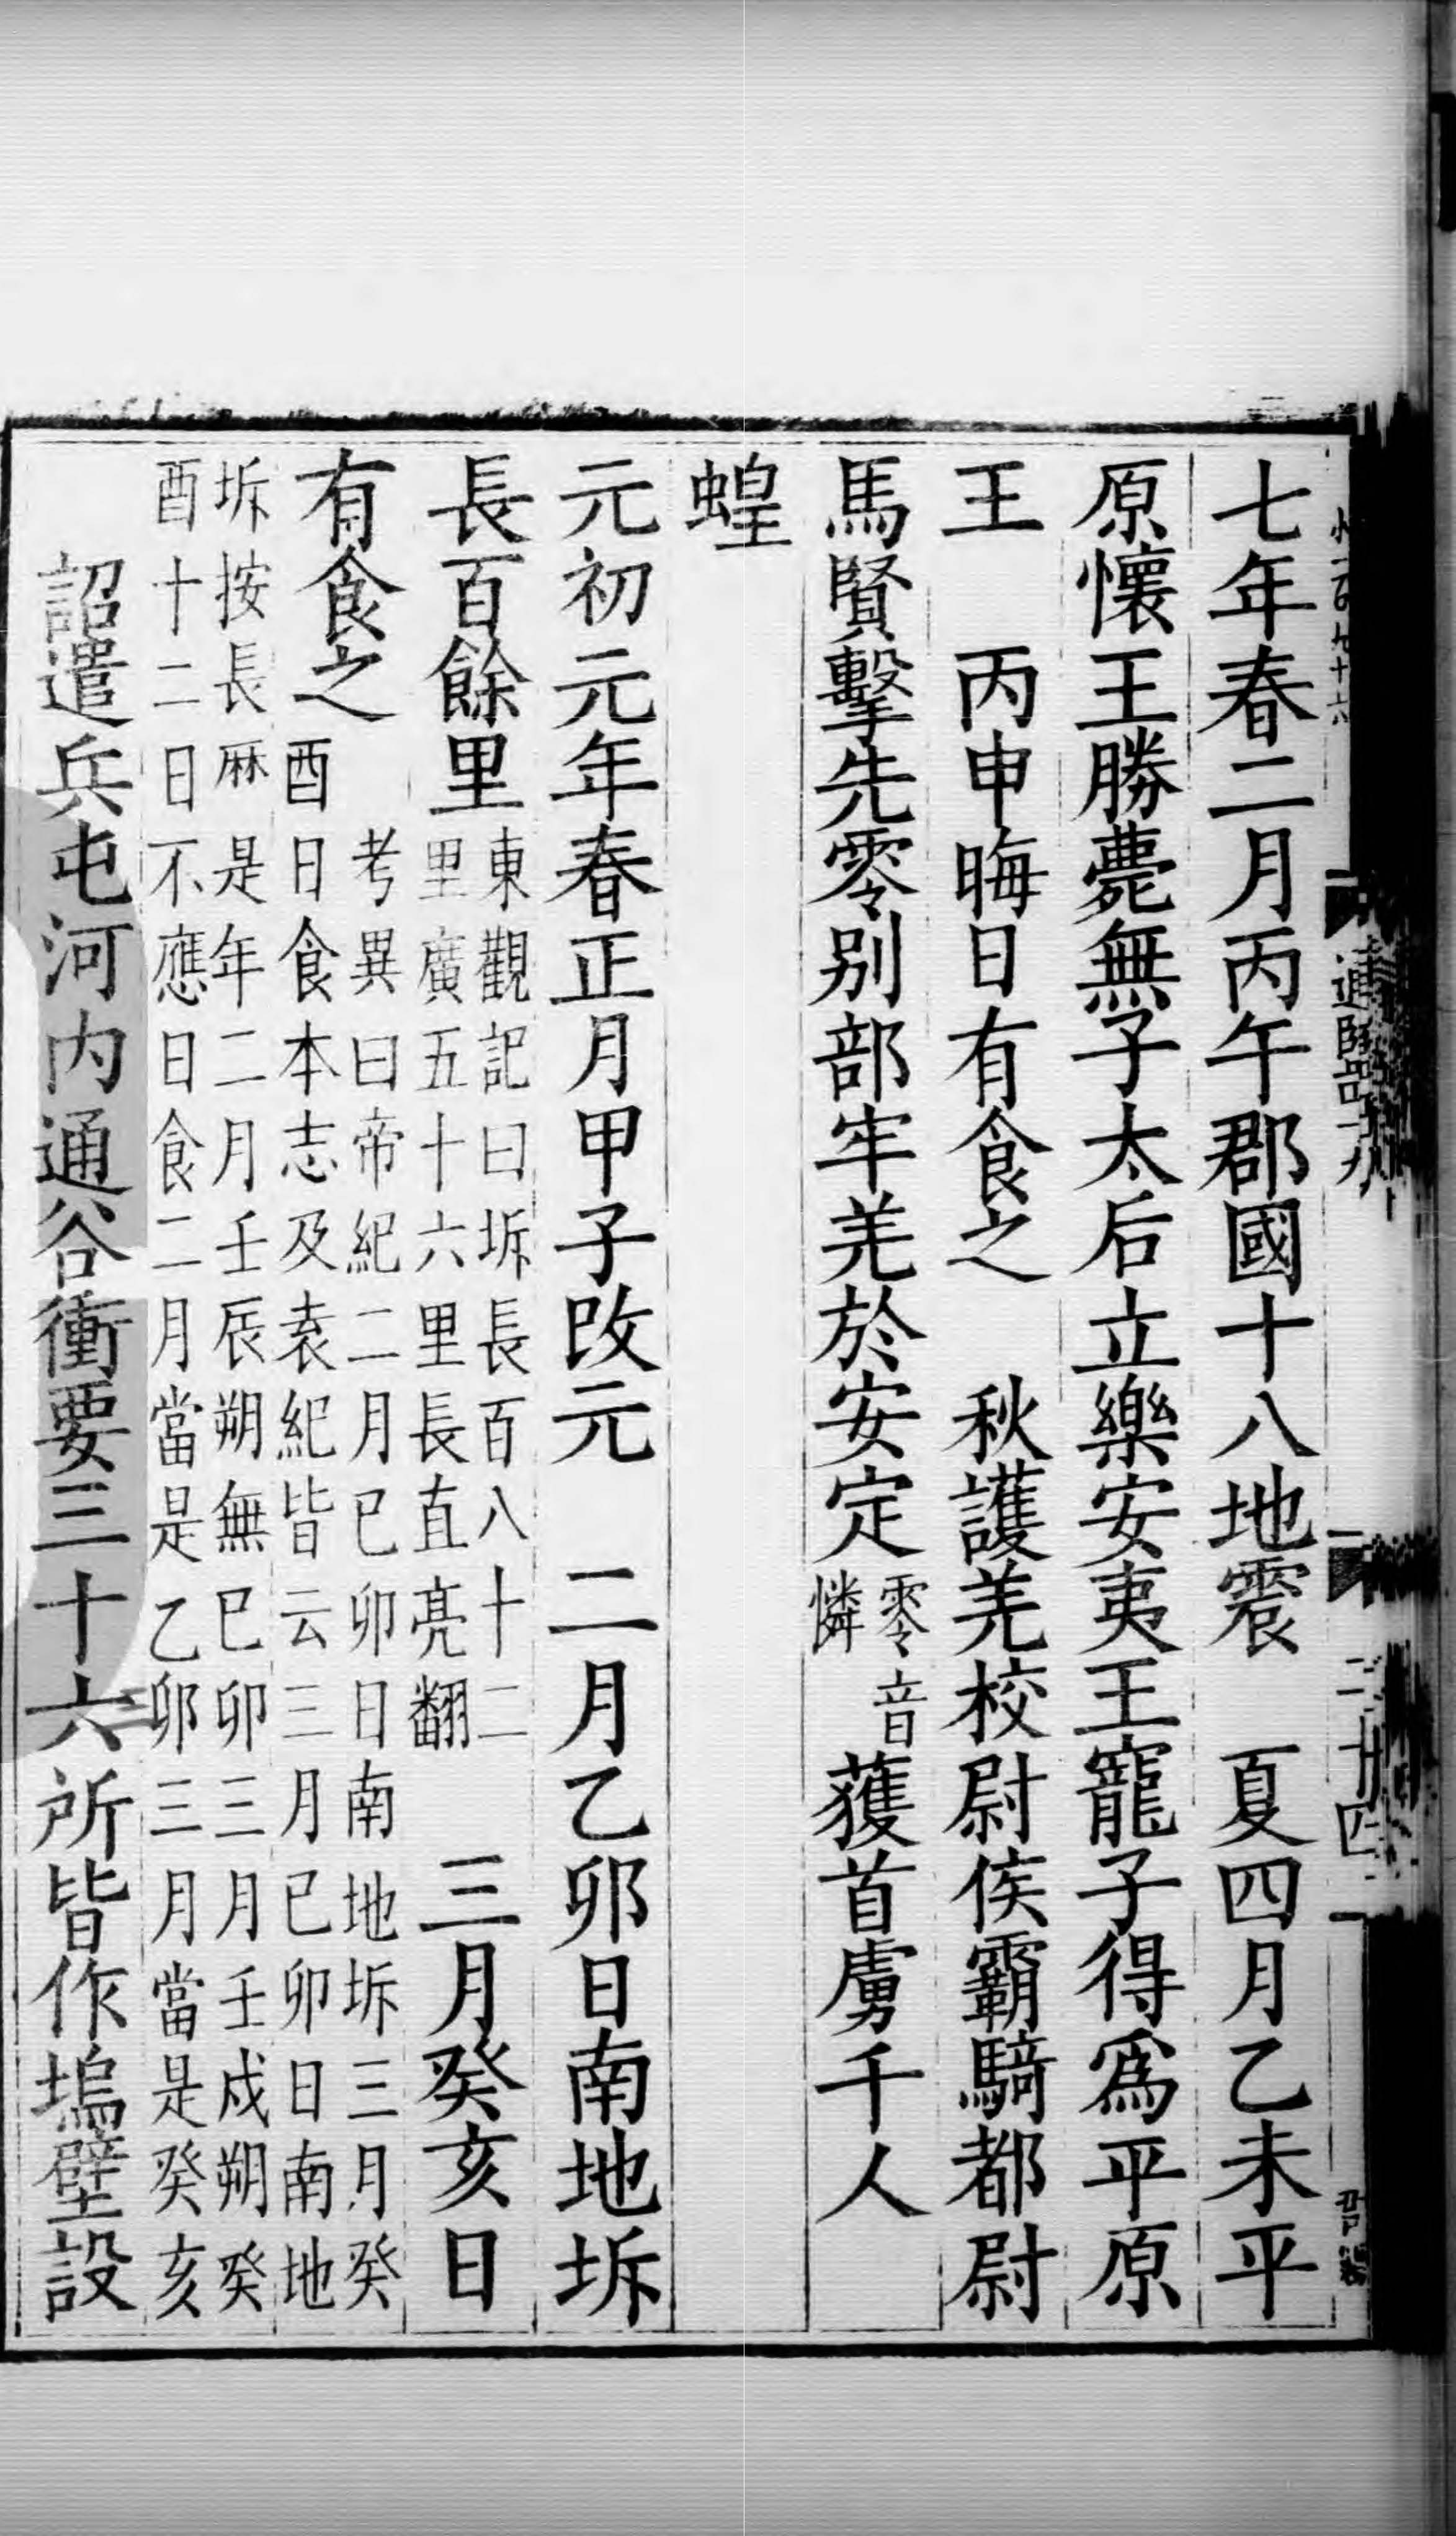 七年春二月丙午郡國十八地震　夏四月乙未平
原懷王勝薨無子太后立樂安夷王寵子得爲平原
王　丙申晦日有食之　秋護羌校尉侯霸騎都尉
馬賢擊先零别部牢羌於安定零音憐獲首虜千人
蝗
元初元年春正月甲子改元　二月乙卯日南地坼
長百餘里東觀記曰坼長百八十二里廣五十六里長直亮翻　三月癸亥日
有食之考異曰帝紀二月巳卯日南地坼三月癸酉日食本志及袁紀皆云三月巳卯日南地
坼按長厤是年二月壬辰朔無巳卯三月壬戌朔癸酉十二日不應日食二月當是乙卯三月當是癸亥
詔遣兵屯河内通谷衝要三十六所皆作塢壁設